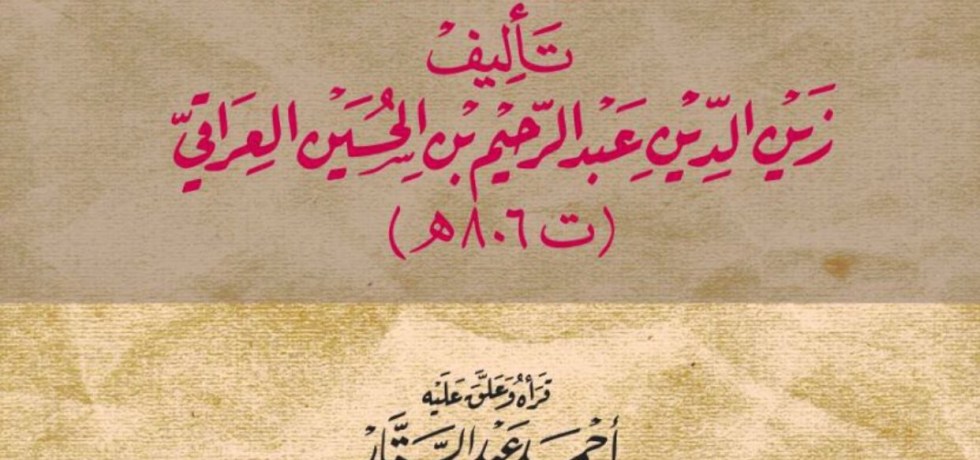 تَأْلِيفْ
زَيْنِ الدِّيْنِ عَبْدِ الرَّحِيْمِ بْنِ الْحُسَيْنِ العِرَاقِيِّ
(ت ٨٠٦ هـ)
قَرَأَهُ وَعَلَّقَ عَلَيْهِ
أَحْمَد عَبْد السَّتَّار